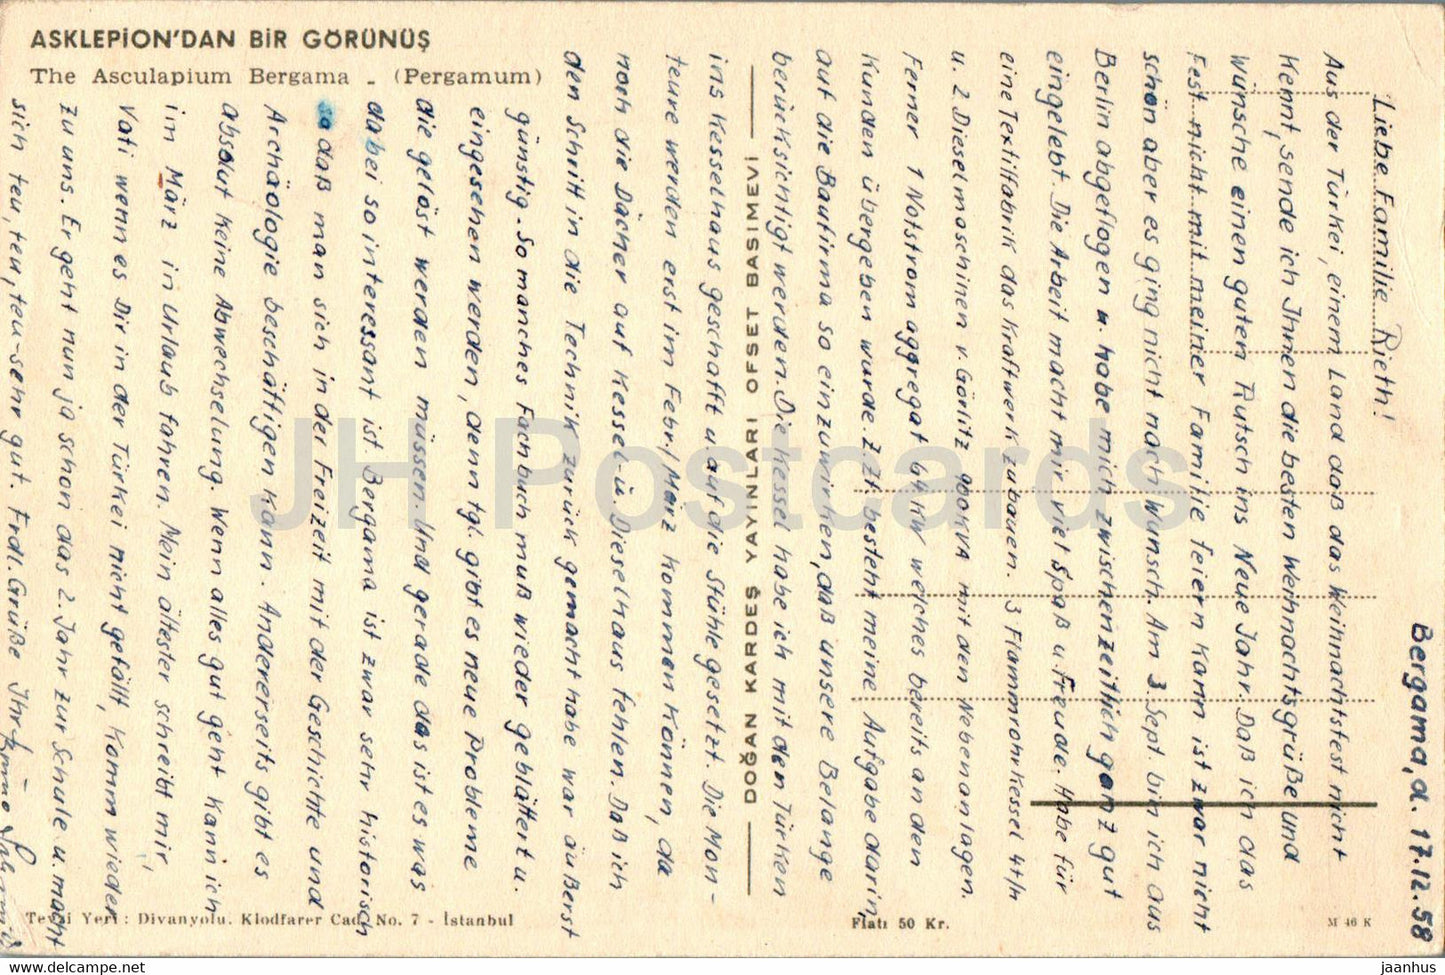 ASKLEPİON'DAN BİR GÖRÜNÜŞ
The Asculapium Bergama - (Pergamum)
Bergama, d. 17.12.58
Liebe Familie Rieth!
Aus der Türkei, einem Land daß das Weihnachtsfest nicht
kennt, sende ich Ihnen die besten Weihnachtsgrüße und
wünsche einen guten Rutsch ins Neue Jahr. Daß ich das
Fest nicht mit meiner Familie feiern kann ist zwar nicht
schön aber es ging nicht nach Wunsch. Am 3. Sept. bin ich aus
Berlin abgeflogen u. habe mich zwischenzeitlich ganz gut
eingelebt. Die Arbeit macht mir viel Spaß u. Freude. Habe für
eine Textilfabrik das Kraftwerk zu bauen. 3 Flammrohrkessel 4t/h
u. 2 Dieselmaschinen v. Görlitz 900KVA mit den Nebenanlagen.
Ferner 1 Notstromaggregat 64kW welches bereits an den
Kunden übergeben wurde. Z.Zt. besteht meine Aufgabe darin,
auf die Baufirma so einzuwirken, daß unsere Belange
berücksichtigt werden. Die Kessel habe ich mit den Türken
ins Kesselhaus geschafft u. auf die Stühle gesetzt. Die Mon-
teure werden erst im Febr./März kommen können, da
noch die Dächer auf Kessel- u. Dieselhaus fehlen. Daß ich
den Schritt in die Technik zurück gemacht habe war äußerst
günstig. So manches Fachbuch muß wieder geblättert u.
eingesehen werden, denn tgl. gibt es neue Probleme
die gelöst werden müssen. Und gerade das ist es was
dabei so interessant ist. Bergama ist zwar sehr historisch
so daß man sich in der Freizeit mit der Geschichte und
Archäologie beschäftigen kann. Andererseits gibt es
absolut keine Abwechselung. Wenn alles gut geht kann ich
im März in Urlaub fahren. Mein ältester schreibt mir
Vati wenn es Dir in der Türkei nicht gefällt, komm wieder
zu uns. Er geht nun ja schon das 2. Jahr zur Schule u. macht
sich teu, teu, teu - sehr gut. Frdl. Grüße Ihr
DOĞAN KARDEŞ YAYINLARI OFSET BASIMEVİ
Tevzi Yeri : Divanyolu. Klodfarer Cad. No. 7 - İstanbul
Fiatı 50 Kr.
M 46 K
JH Postcards
jaanhus @ delcampe.net